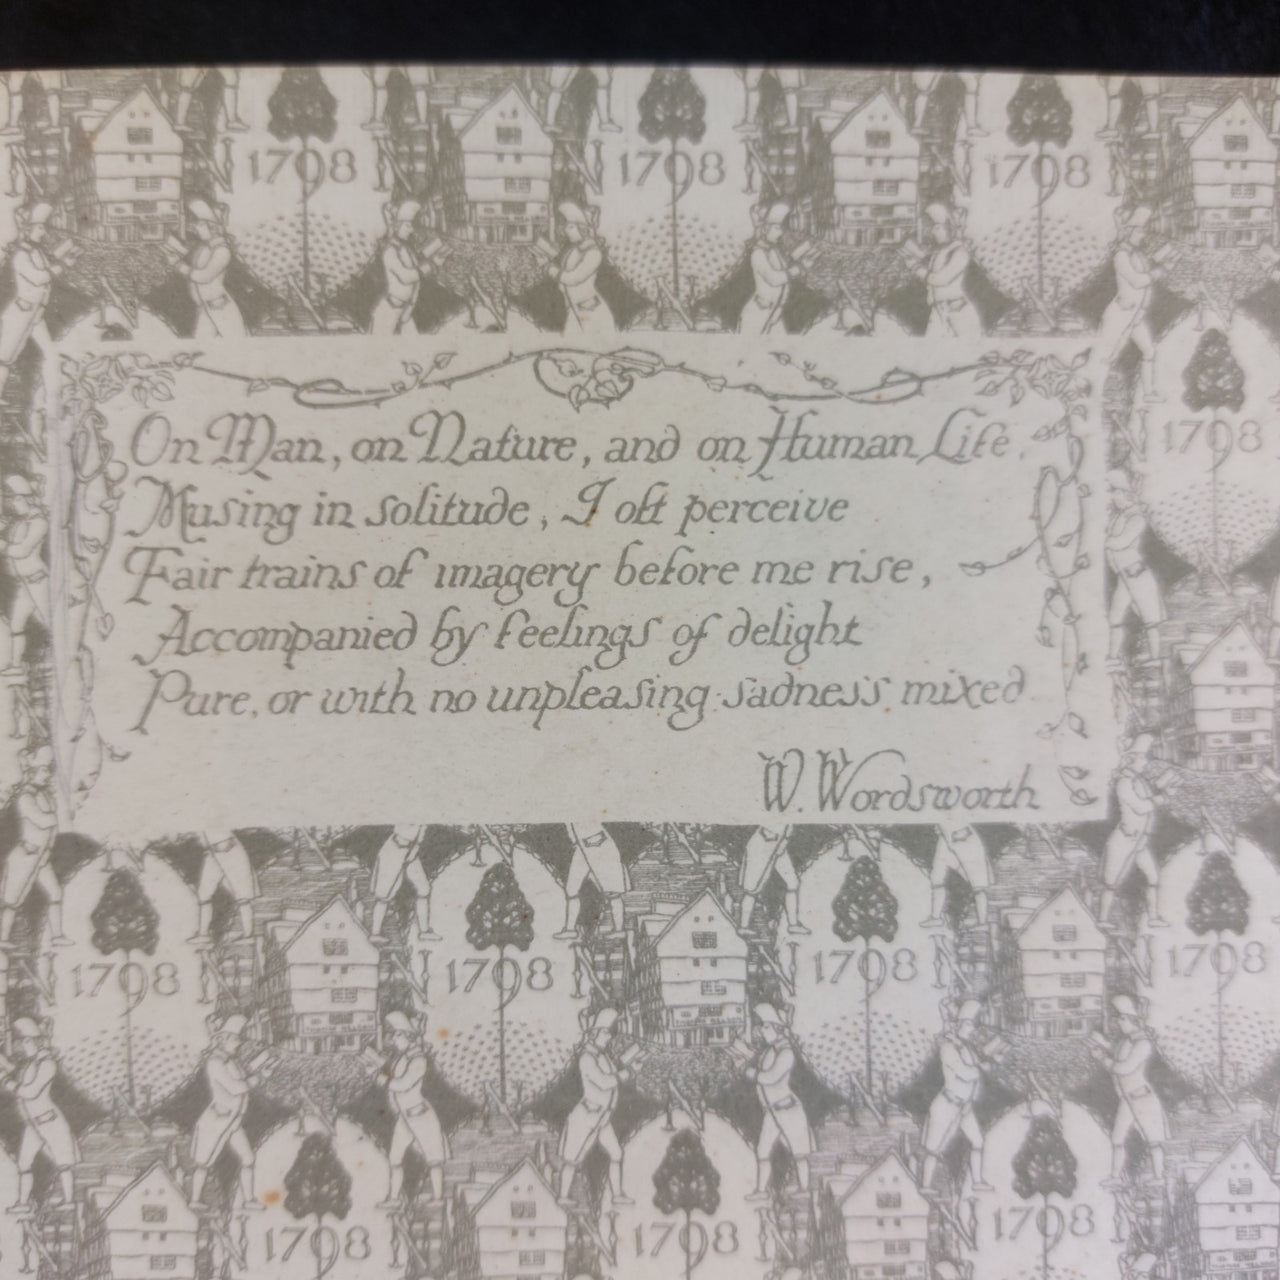 1798 1798 1798
1798
On Man, on Nature, and on Human Life,
Musing in solitude, I oft perceive
Fair trains of imagery before me rise,
Accompanied by feelings of delight
Pure, or with no unpleasing sadness mixed
W. Wordsworth
1798 1798 1798 1798
1798 1798 1798